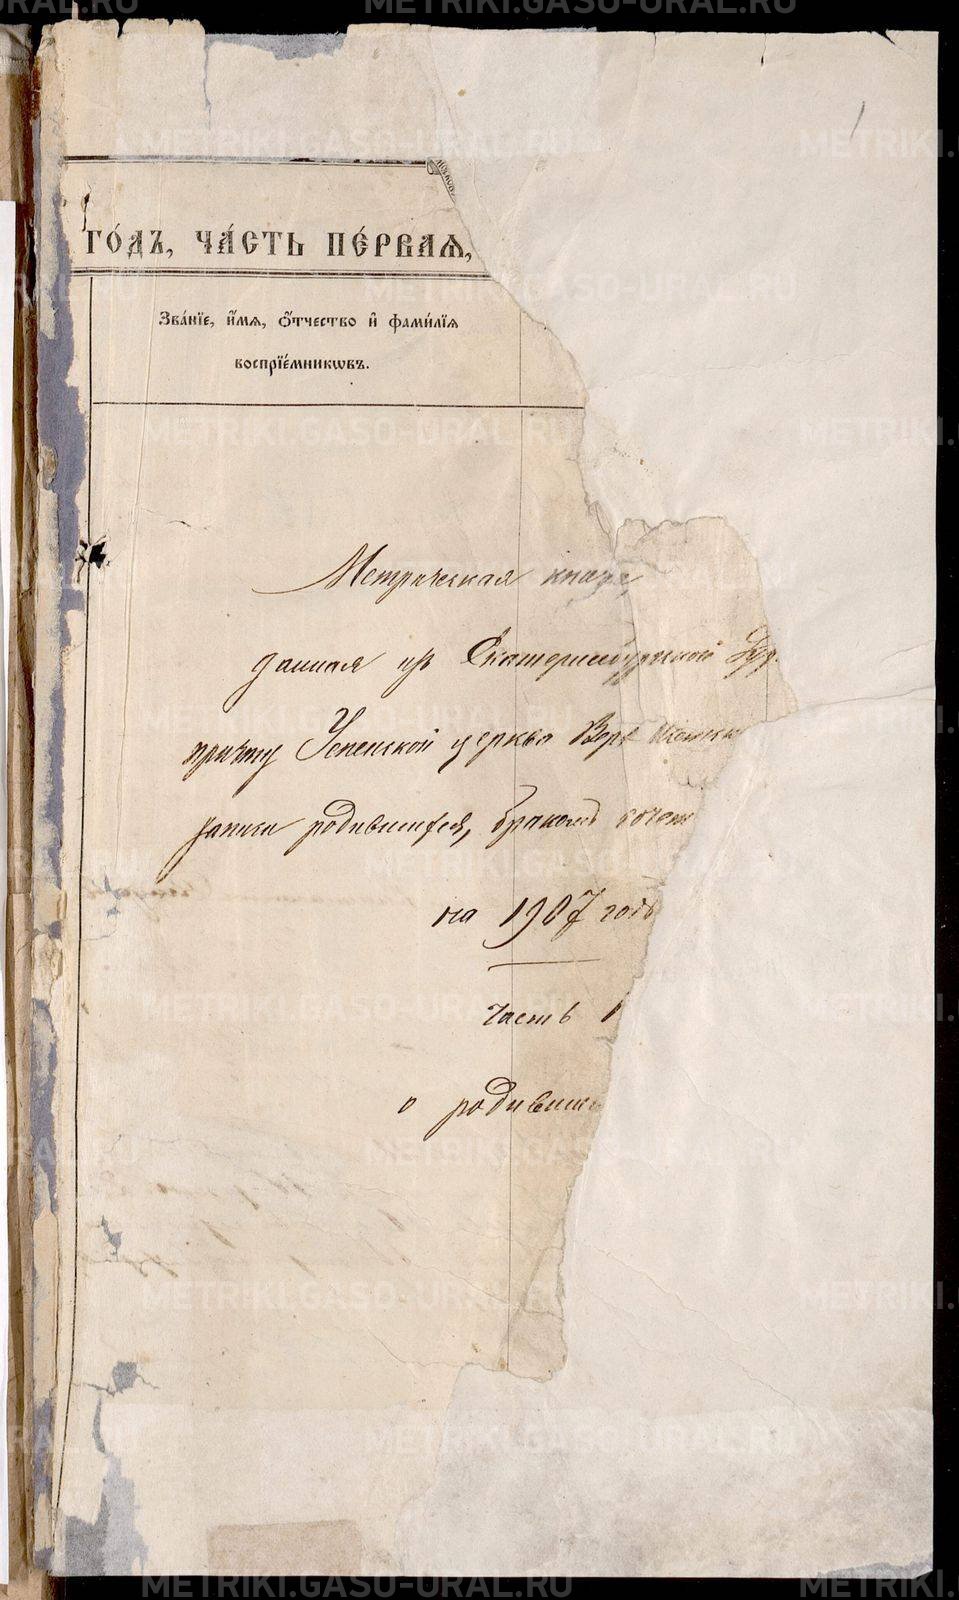 1
ГО́ДЪ, ЧА́СТЬ ПЕ́РВАѦ,
Зва́нїе, и҆́мѧ, ѻ҆́тчество и҆ фами́лїѧ
воспрїе́мникѡвъ.
Метрическая книга,
данная изъ Екатеринбургской Дух.
причту Успенской церкви Верх
записи родившихся, бракомъ сочет
на 1907 годъ
Часть I
о родивши
METRIKI.GASO-URAL.RU